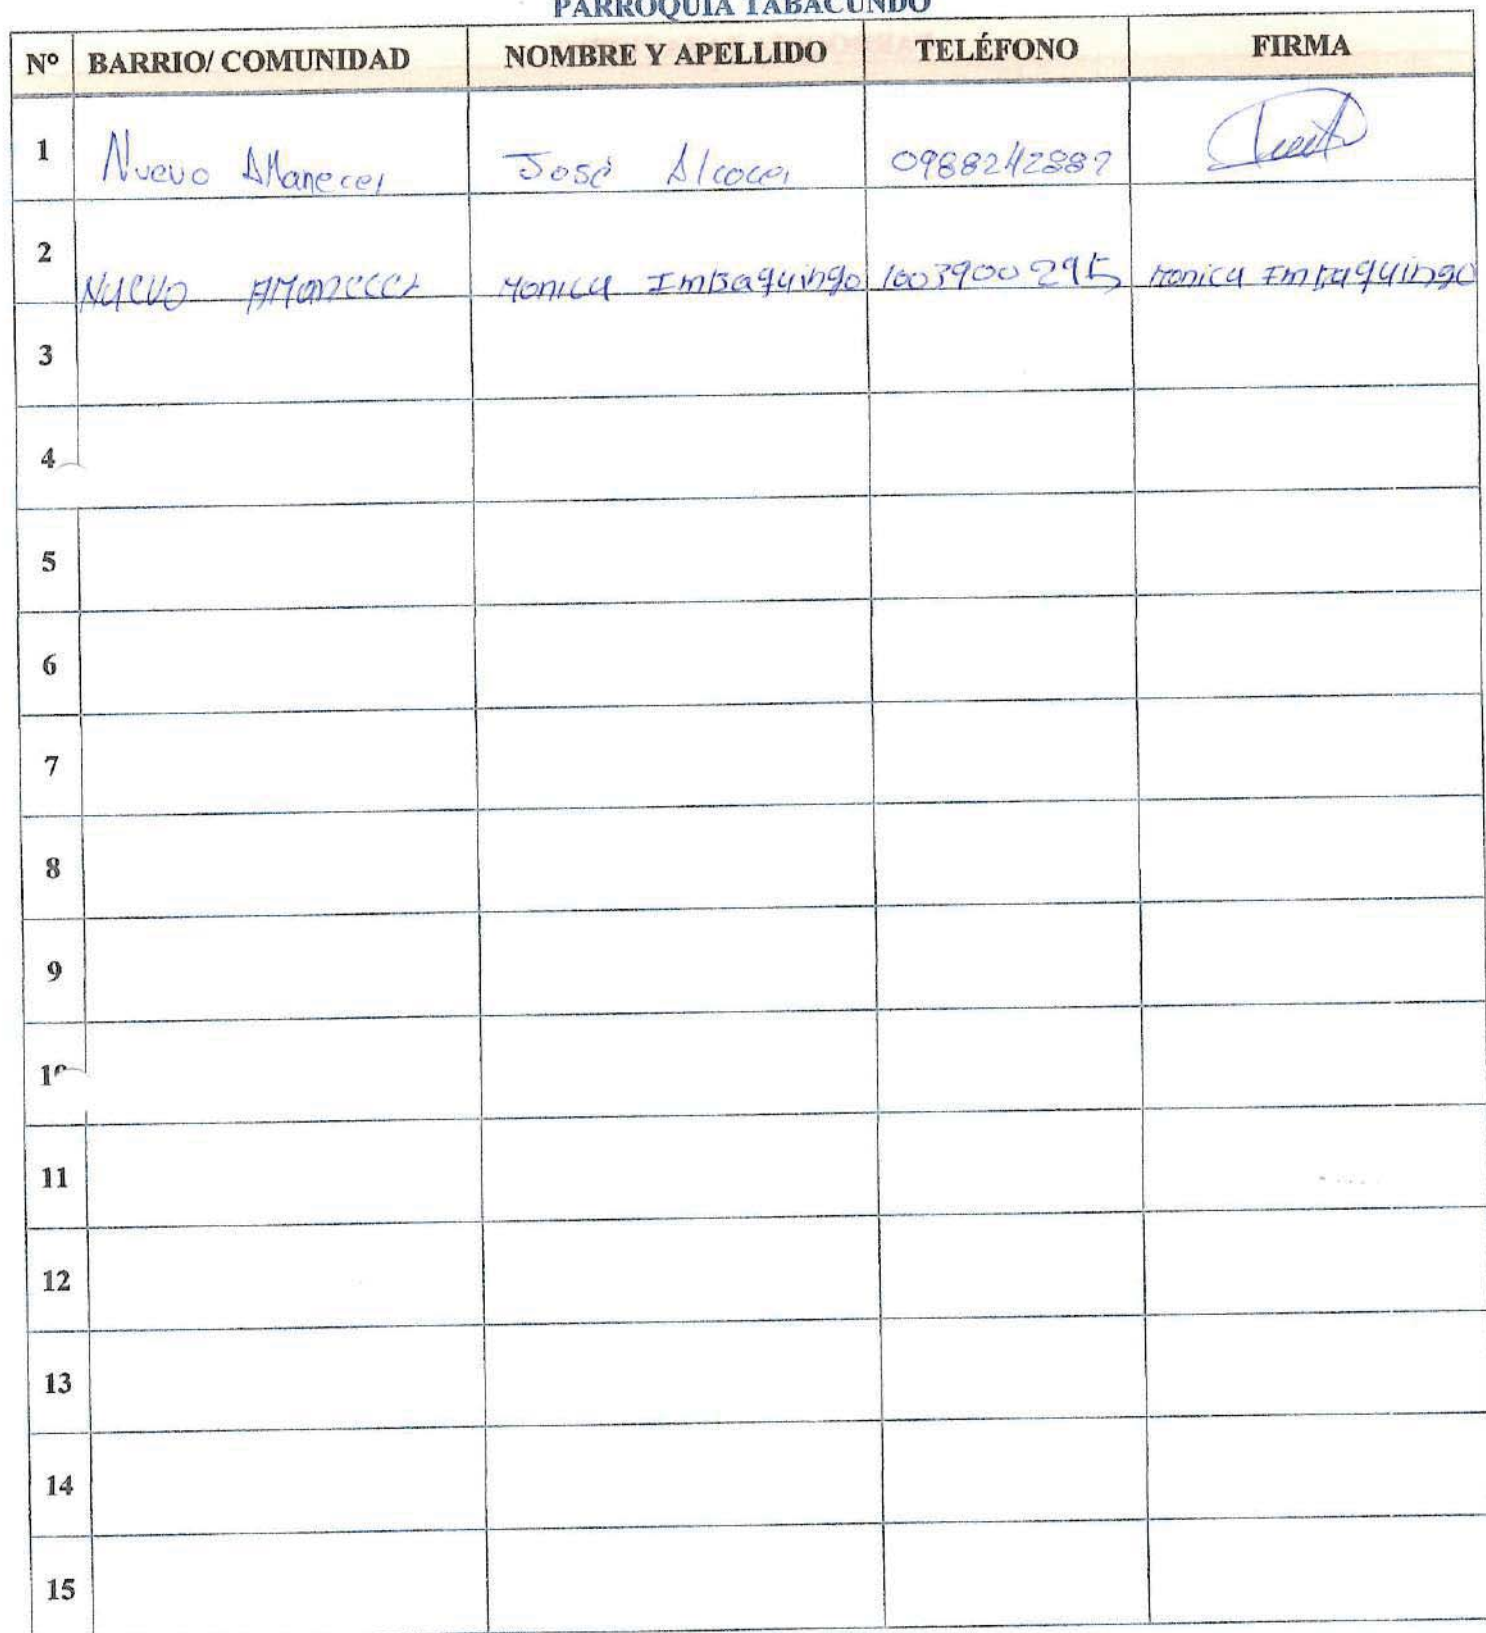 PARROQUIA TABACUNDO
Nº BARRIO/ COMUNIDAD NOMBRE Y APELLIDO TELÉFONO FIRMA
1 Nuevo AManecer José Alcocer 0988242887
2 NUEVO AMANECER MONICA IMBAQUINGO 1003900295 MONICA IMBAQUINGO
3
4
5
6
7
8
9
10
11
12
13
14
15